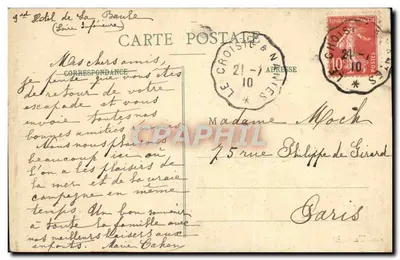 Hôtel de La Baule
(Loire Inférieure)
CARTE POSTALE
CORRESPONDANCE
ADRESSE
LE CROISIC A NANTES
21-
10
LE CROISIC
10
POSTES
10
Mes chers amis,
je pense que vous êtes
de retour de votre
escapade et vous
envoie toutes nos
bonnes amitiés
Nous nous plaisons
beaucoup ici où
l'on a les plaisirs de
la mer et de la vraie
campagne en même
temps. Un bon souvenir
à toute la famille avec
nos meilleurs baisers aux
enfants. Marie Cahen
Madame Moch
75 rue Philippe de Girard
Paris
CPRPHIL